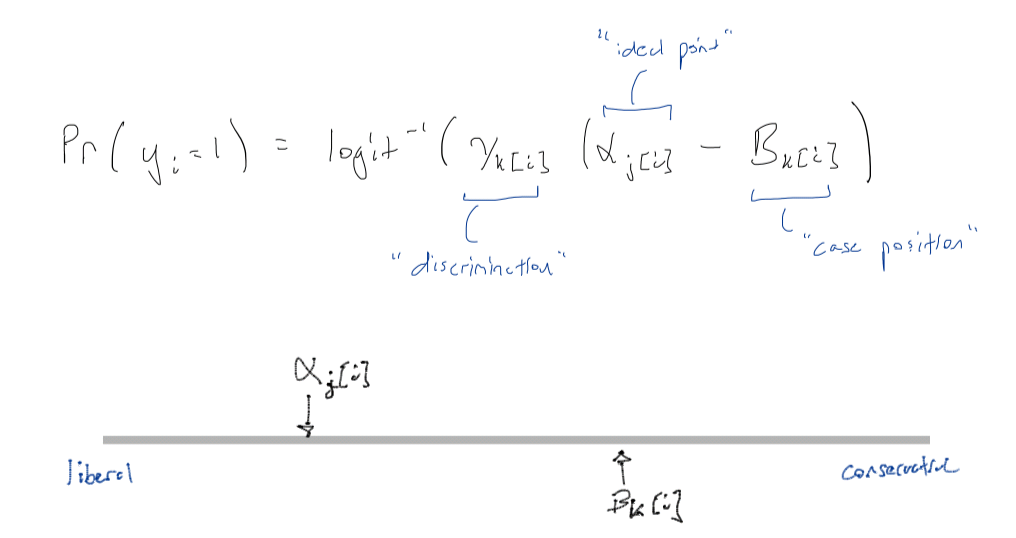 "ideal point"
Pr(y_i=1) = logit^-1(γ_k[i](α_j[i] - B_k[i])
"discrimination"
"case position"
α_j[i]
liberal
conservative
B_k[i]